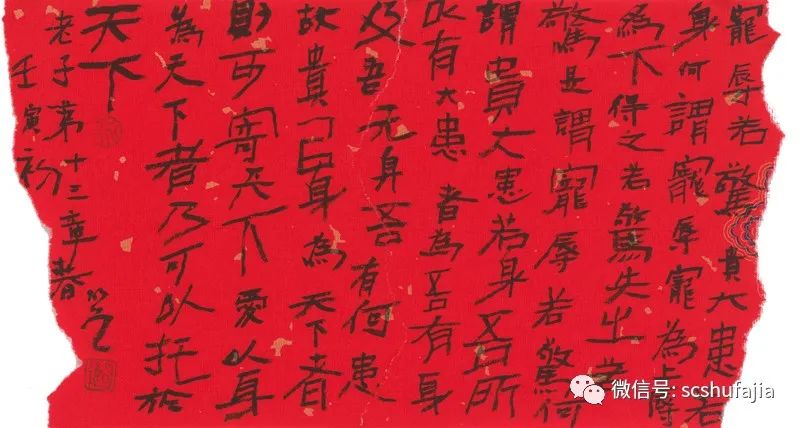 寵辱若驚貴大患若
身何謂寵辱寵為上辱
為下得之若驚失之若
驚是謂寵辱若驚何
謂貴大患若身吾所
以有大患者為吾有身
及吾无身吾有何患
故貴以身為天下者
則可寄天下愛以身
為天下者乃可以托於
天下
老子第十三章
壬寅初春
微信号: scshufajia